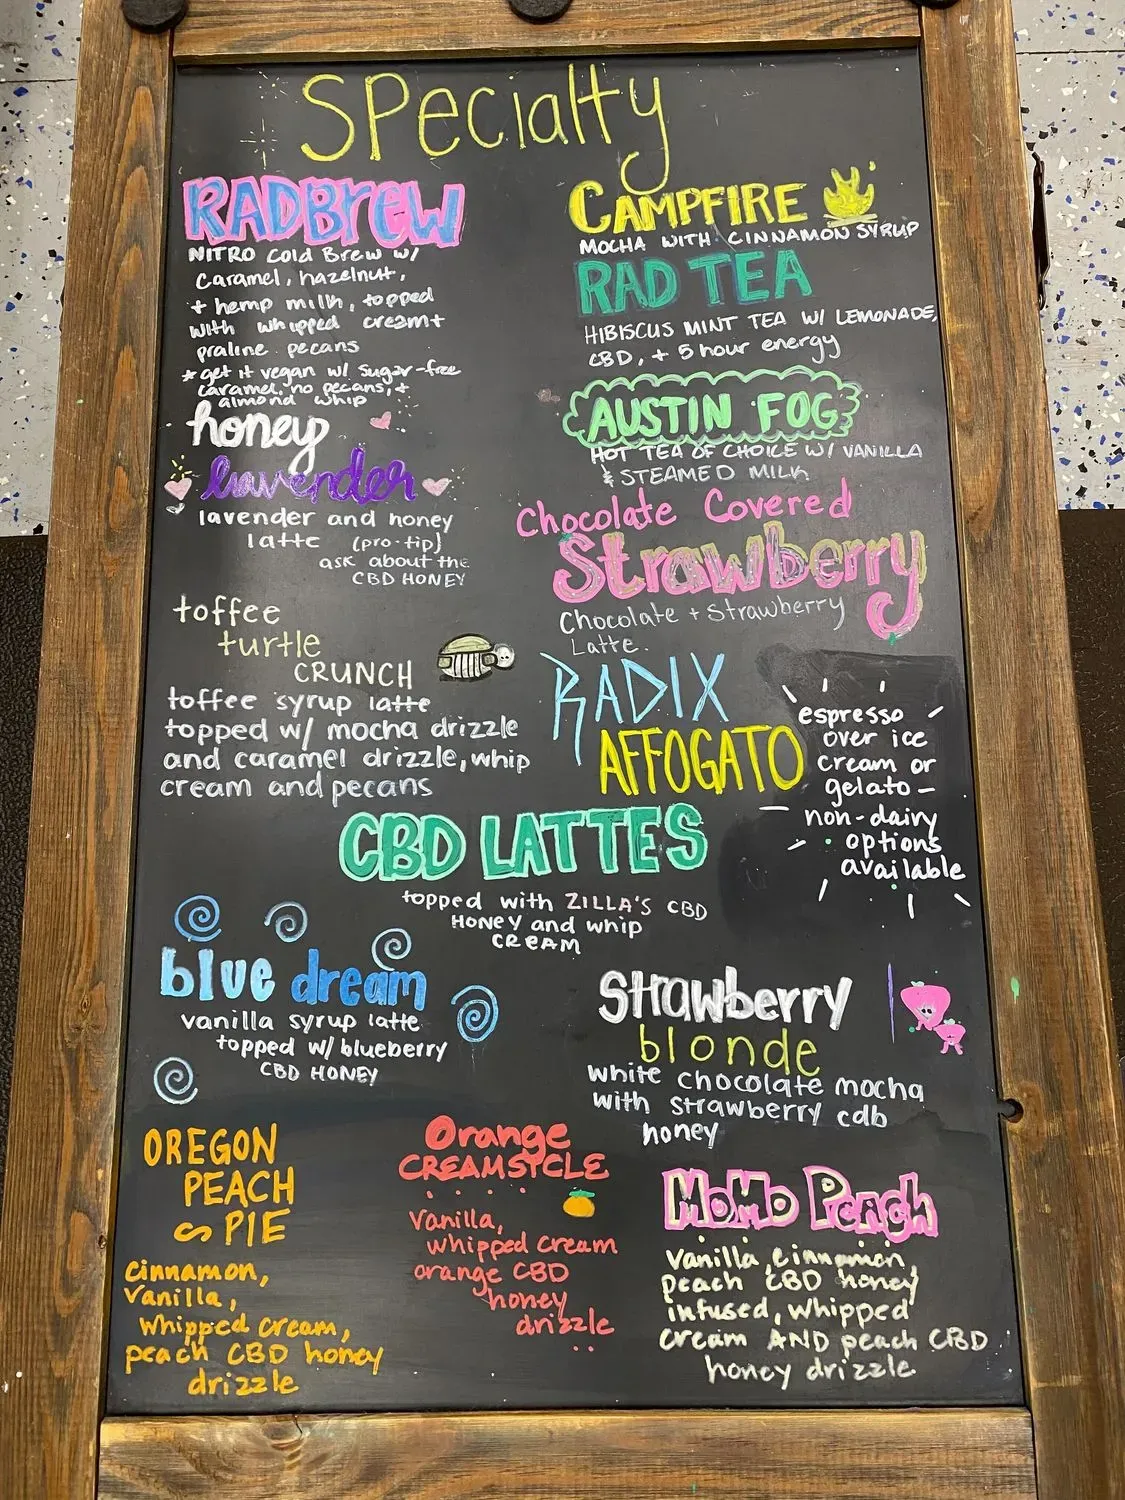 SPecialty
RADBREW
NITRO Cold Brew w/
Caramel, hazelnut,
+ hemp milk, topped
with whipped cream +
praline pecans
* get it vegan w/ sugar-free
caramel, no pecans, +
almond whip
honey
lavender
lavender and honey
latte (pro-tip)
ask about the
CBD HONEY
toffee
turtle
CRUNCH
toffee syrup latte
topped w/ mocha drizzle
and caramel drizzle, whip
cream and pecans
CAMPFIRE
MOCHA WITH CINNAMON SYRUP
RAD TEA
HIBISCUS MINT TEA W/ LEMONADE,
CBD, + 5 hour energy
AUSTIN FOG
HOT TEA OF CHOICE W/ VANILLA
& STEAMED MILK
Chocolate Covered
Strawberry
Chocolate + Strawberry
Latte.
RADIX
AFFOGATO
espresso
over ice
cream or
gelato -
non-dairy
options
available
CBD LATTES
topped with ZILLA'S CBD
HONEY and whip
CREAM
blue dream
vanilla syrup latte
topped w/ blueberry
CBD HONEY
Strawberry
blonde
white chocolate mocha
with strawberry cdb
honey
OREGON
PEACH
PIE
cinnamon,
vanilla,
whipped cream,
peach CBD honey
drizzle
Orange
CREAMSICLE
vanilla,
whipped cream
orange CBD
honey
drizzle
MOMO PEACH
vanilla, cinnamon,
peach CBD honey
infused, whipped
cream AND peach CBD
honey drizzle